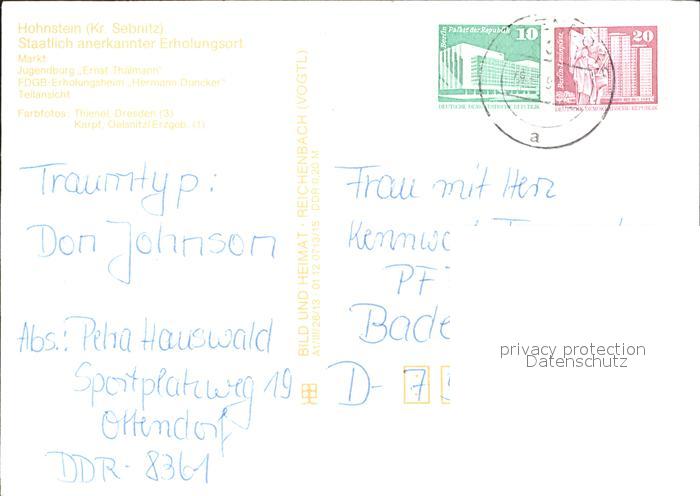 Hohnstein (Kr. Sebnitz)
Staatlich anerkannter Erholungsort
Markt
Jugendburg „Ernst Thälmann"
FDGB-Erholungsheim „Hermann Duncker"
Teilansicht
Farbfotos: Thienel, Dresden (3)
Karpf, Oelsnitz/Erzgeb. (1)
BILD UND HEIMAT · REICHENBACH (VOGTL)
A1/III/26/13 01 12 0713/15 DDR 0,20 M
Berlin Palast der Republik
10
DEUTSCHE DEMOKRATISCHE REPUBLIK
Berlin-Leninplatz
20
DEUTSCHE DEMOKRATISCHE REPUBLIK
a
Traumtyp:
Don Johnson
Abs.: Petra Hauswald
Sportplatzweg 19
Ottendorf
DDR-8361
Frau mit Herz
PF
Bade
D-7
privacy protection
Datenschutz